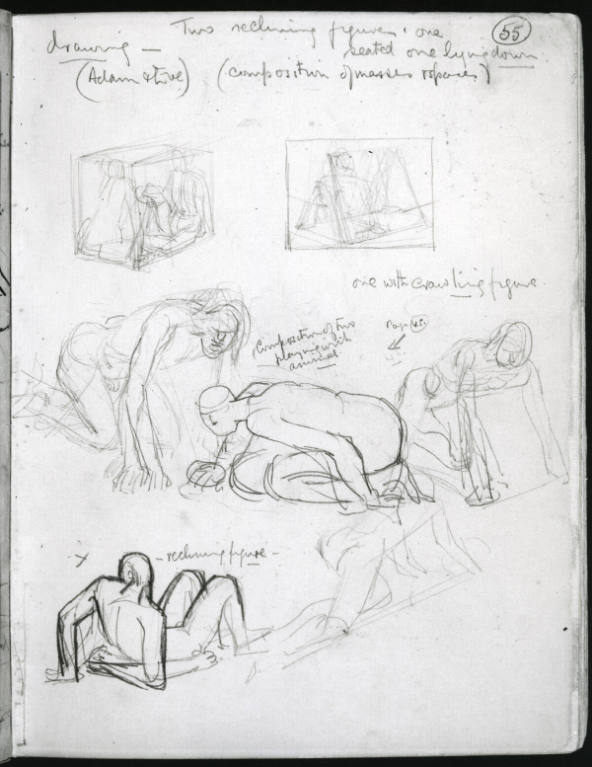 55
Two reclining figures. one
seated one lying down
drawing —
(Adam & Eve) (composition of masses & spaces)
one with crawling figure.
Composition of two
playing with
animal
- reclining figure -